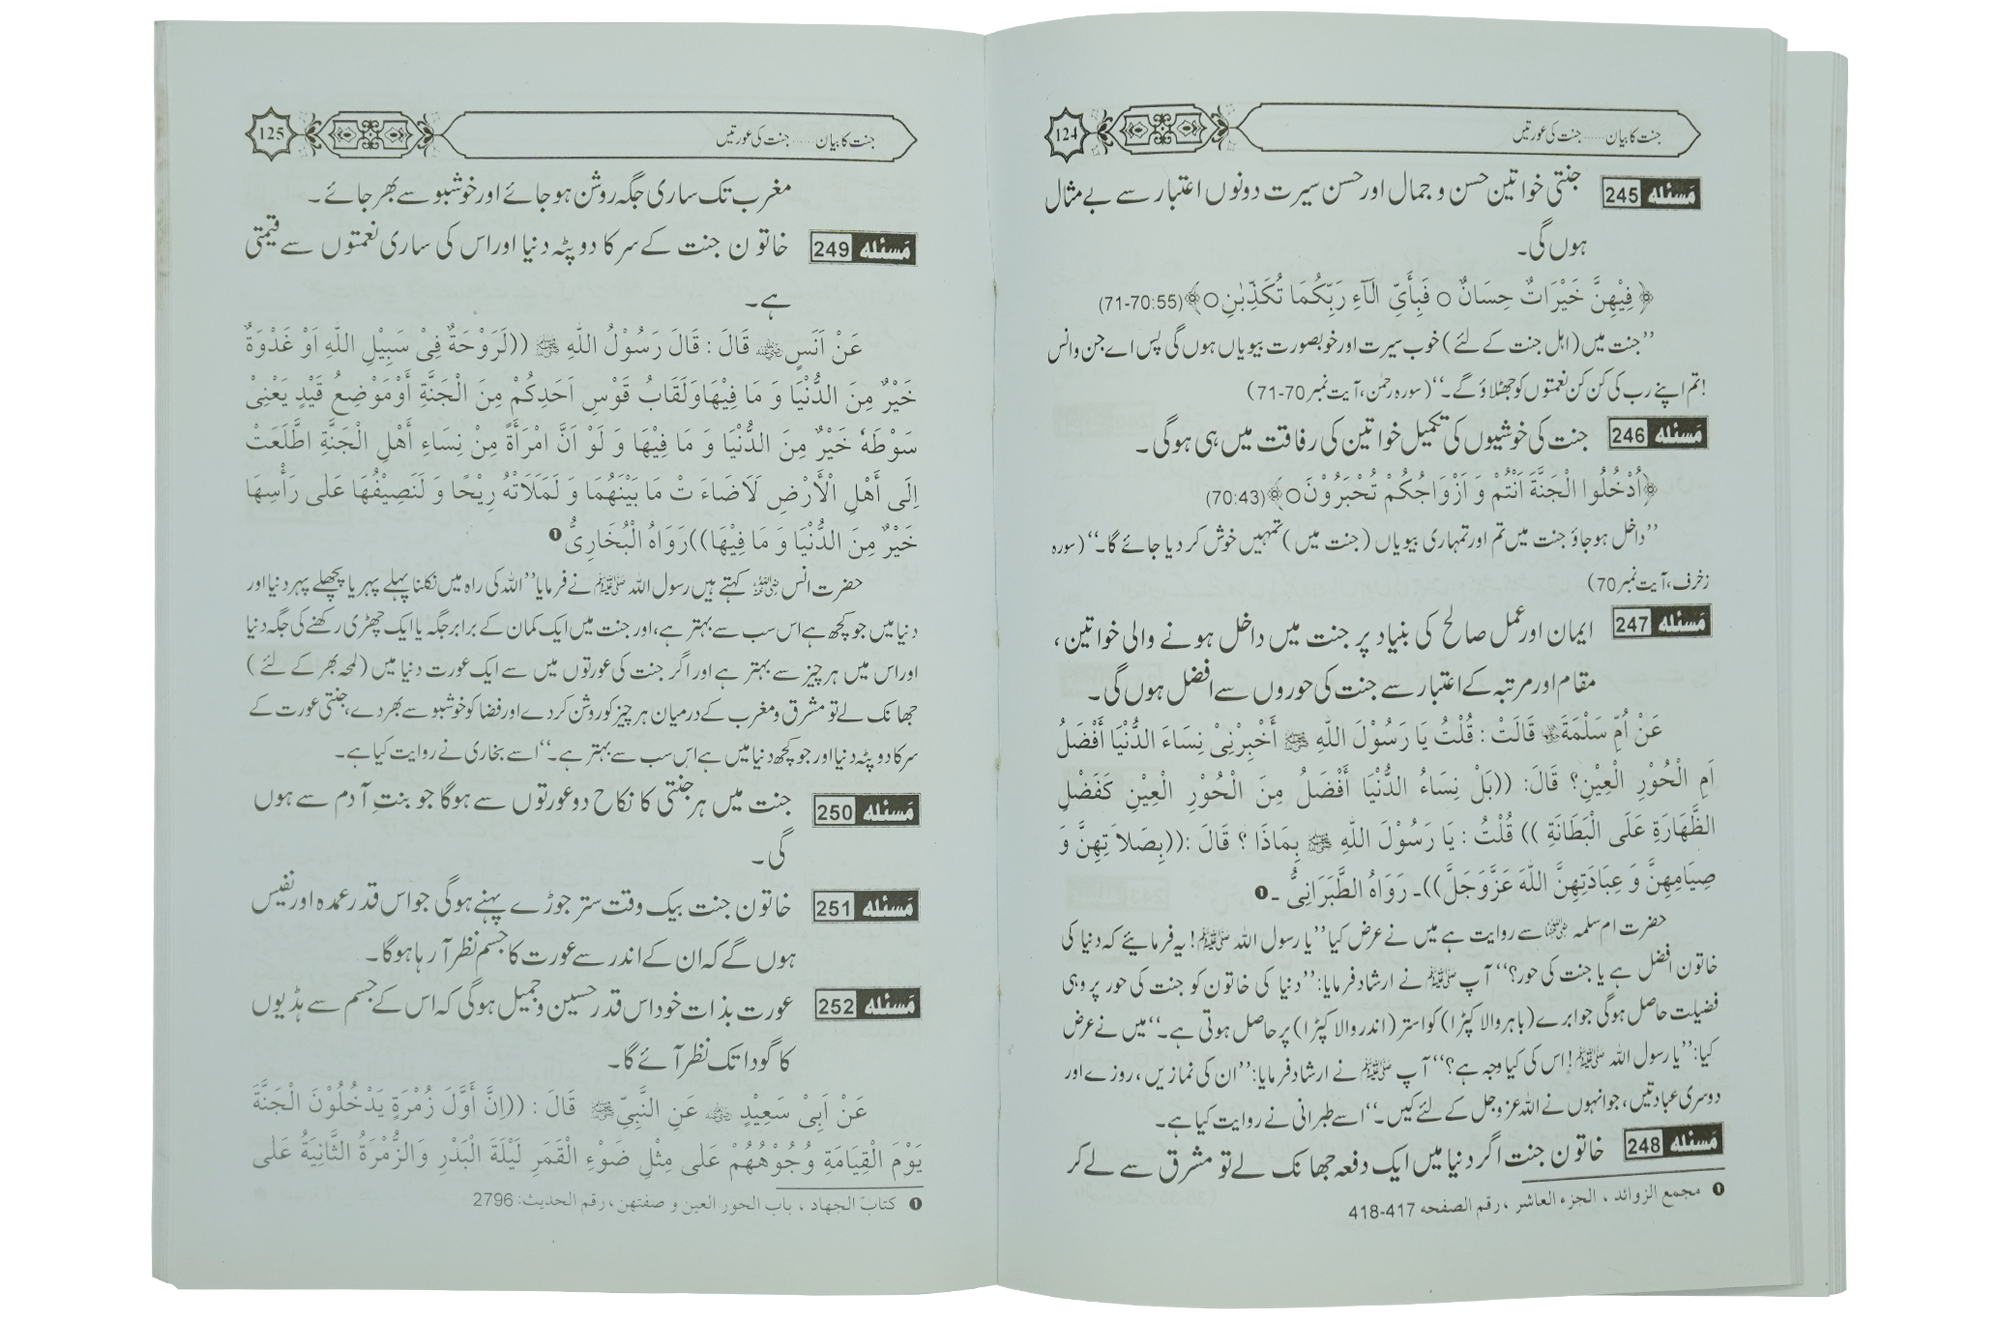 جنت کا بیان ...... جنت کی عورتیں
124
مَسئله 245 جنتی خواتین حسن و جمال اور حسن سیرت دونوں اعتبار سے بے مثال
ہوں گی۔
﴿ فِيْهِنَّ خَيْرَاتٌ حِسَانٌ ○ فَبِأَيِّ آلَآءِ رَبِّكُمَا تُكَذِّبٰنِ○﴾(55:70-71)
’’جنت میں (اہل جنت کے لئے) خوب سیرت اور خوبصورت بیویاں ہوں گی پس اے جن وانس
!تم اپنے رب کی کن کن نعمتوں کو جھٹلاؤ گے۔‘‘ (سورہ رحمٰن، آیت نمبر 70-71)
مَسئله 246 جنت کی خوشیوں کی تکمیل خواتین کی رفاقت میں ہی ہوگی۔
﴿اُدْخُلُوا الْجَنَّةَ اَنْتُمْ وَ اَزْوَاجُكُمْ تُحْبَرُوْنَ○﴾(43:70)
’’داخل ہوجاؤ جنت میں تم اور تمہاری بیویاں (جنت میں) تمہیں خوش کر دیا جائے گا۔‘‘ (سورہ
زخرف، آیت نمبر 70)
مَسئله 247 ایمان اور عمل صالح کی بنیاد پر جنت میں داخل ہونے والی خواتین،
مقام اور مرتبہ کے اعتبار سے جنت کی حوروں سے افضل ہوں گی۔
عَنْ اُمِّ سَلْمَةَ رضی اللہ عنہا قَالَتْ : قُلْتُ يَا رَسُوْلَ اللّٰهِ ﷺ أَخْبِرْنِيْ نِسَاءَ الدُّنْيَا أَفْضَلُ
اَمِ الْحُوْرِ الْعِيْنِ؟ قَالَ: ((بَلْ نِسَاءُ الدُّنْيَا أَفْضَلُ مِنَ الْحُوْرِ الْعِيْنِ كَفَضْلِ
الظَّهَارَةِ عَلَى الْبَطَانَةِ )) قُلْتُ : يَا رَسُوْلَ اللّٰهِ ﷺ بِمَاذَا ؟ قَالَ :((بِصَلاَ تِهِنَّ وَ
صِيَامِهِنَّ وَ عِبَادَتِهِنَّ اللّٰهَ عَزَّوَجَلَّ))۔ رَوَاهُ الطَّبَرَانِيُّ ۔❶
حضرت ام سلمہ رضی اللہ عنہا سے روایت ہے میں نے عرض کیا ’’یا رسول اللہ ﷺ! یہ فرمایئے کہ دنیا کی
خاتون افضل ہے یا جنت کی حور؟‘‘ آپ ﷺ نے ارشاد فرمایا: ’’دنیا کی خاتون کو جنت کی حور پر وہی
فضیلت حاصل ہوگی جو ابرے (باہر والا کپڑا) کو استر (اندر والا کپڑا) پر حاصل ہوتی ہے۔‘‘ میں نے عرض
کیا: ’’یا رسول اللہ ﷺ! اس کی کیا وجہ ہے؟‘‘ آپ ﷺ نے ارشاد فرمایا: ’’ان کی نمازیں، روزے اور
دوسری عبادتیں، جو انہوں نے اللہ عزوجل کے لئے کیں۔‘‘ اسے طبرانی نے روایت کیا ہے۔
مَسئله 248 خاتون جنت اگر دنیا میں ایک دفعہ جھانک لے تو مشرق سے لے کر
❶ مجمع الزوائد ، الجزء العاشر ، رقم الصفحه 417-418
جنت کا بیان ...... جنت کی عورتیں
125
مغرب تک ساری جگہ روشن ہو جائے اور خوشبو سے بھر جائے۔
مَسئله 249 خاتون جنت کے سر کا دوپٹہ دنیا اور اس کی ساری نعمتوں سے قیمتی
ہے۔
عَنْ اَنَسٍ رضی اللہ عنہ قَالَ : قَالَ رَسُوْلُ اللّٰهِ ﷺ ((لَرَوْحَةٌ فِيْ سَبِيْلِ اللّٰهِ اَوْ غَدْوَةٌ
خَيْرٌ مِنَ الدُّنْيَا وَ مَا فِيْهَاوَلَقَابُ قَوْسِ اَحَدِكُمْ مِنَ الْجَنَّةِ أَوْمَوْضِعُ قَيْدٍ يَعْنِيْ
سَوْطَهٗ خَيْرٌ مِنَ الدُّنْيَا وَ مَا فِيْهَا وَ لَوْ اَنَّ امْرَأَةً مِنْ نِسَاءِ أَهْلِ الْجَنَّةِ اطَّلَعَتْ
اِلَى أَهْلِ الْأَرْضِ لَاَضَاءَ تْ مَا بَيْنَهُمَا وَ لَمَلَاَتْهُ رِيْحًا وَ لَنَصِيْفُهَا عَلٰى رَأْسِهَا
خَيْرٌ مِنَ الدُّنْيَا وَ مَا فِيْهَا))رَوَاهُ الْبُخَارِيُّ ❶
حضرت انس رضی اللہ عنہ کہتے ہیں رسول اللہ ﷺ نے فرمایا ’’اللہ کی راہ میں نکلنا پہلے پہر یا پچھلے پہر دنیا اور
دنیا میں جو کچھ ہے اس سب سے بہتر ہے، اور جنت میں ایک کمان کے برابر جگہ یا ایک چھڑی رکھنے کی جگہ دنیا
اور اس میں ہر چیز سے بہتر ہے اور اگر جنت کی عورتوں میں سے ایک عورت دنیا میں (لمحہ بھر کے لئے)
جھانک لے تو مشرق ومغرب کے درمیان ہر چیز کو روشن کر دے اور فضا کو خوشبو سے بھر دے، جنتی عورت کے
سر کا دوپٹہ دنیا اور جو کچھ دنیا میں ہے اس سب سے بہتر ہے۔‘‘ اسے بخاری نے روایت کیا ہے۔
مَسئله 250 جنت میں ہر جنتی کا نکاح دو عورتوں سے ہوگا جو بنتِ آدم سے ہوں
گی۔
مَسئله 251 خاتون جنت بیک وقت ستر جوڑے پہنے ہوگی جو اس قدر عمدہ اور نفیس
ہوں گے کہ ان کے اندر سے عورت کا جسم نظر آ رہا ہوگا۔
مَسئله 252 عورت بذات خود اس قدر حسین وجمیل ہوگی کہ اس کے جسم سے ہڈیوں
کا گودا تک نظر آئے گا۔
عَنْ اَبِيْ سَعِيْدٍ رضی اللہ عنہ عَنِ النَّبِيِّ ﷺ قَالَ : ((اِنَّ أَوَّلَ زُمْرَةٍ يَدْخُلُوْنَ الْجَنَّةَ
يَوْمَ الْقِيَامَةِ وُجُوْهُهُمْ عَلٰى مِثْلِ ضَوْءِ الْقَمَرِ لَيْلَةَ الْبَدْرِ وَالزُّمْرَةُ الثَّانِيَةُ عَلٰى
❶ كتاب الجهاد ، باب الحور العين و صفتهن ، رقم الحديث: 2796